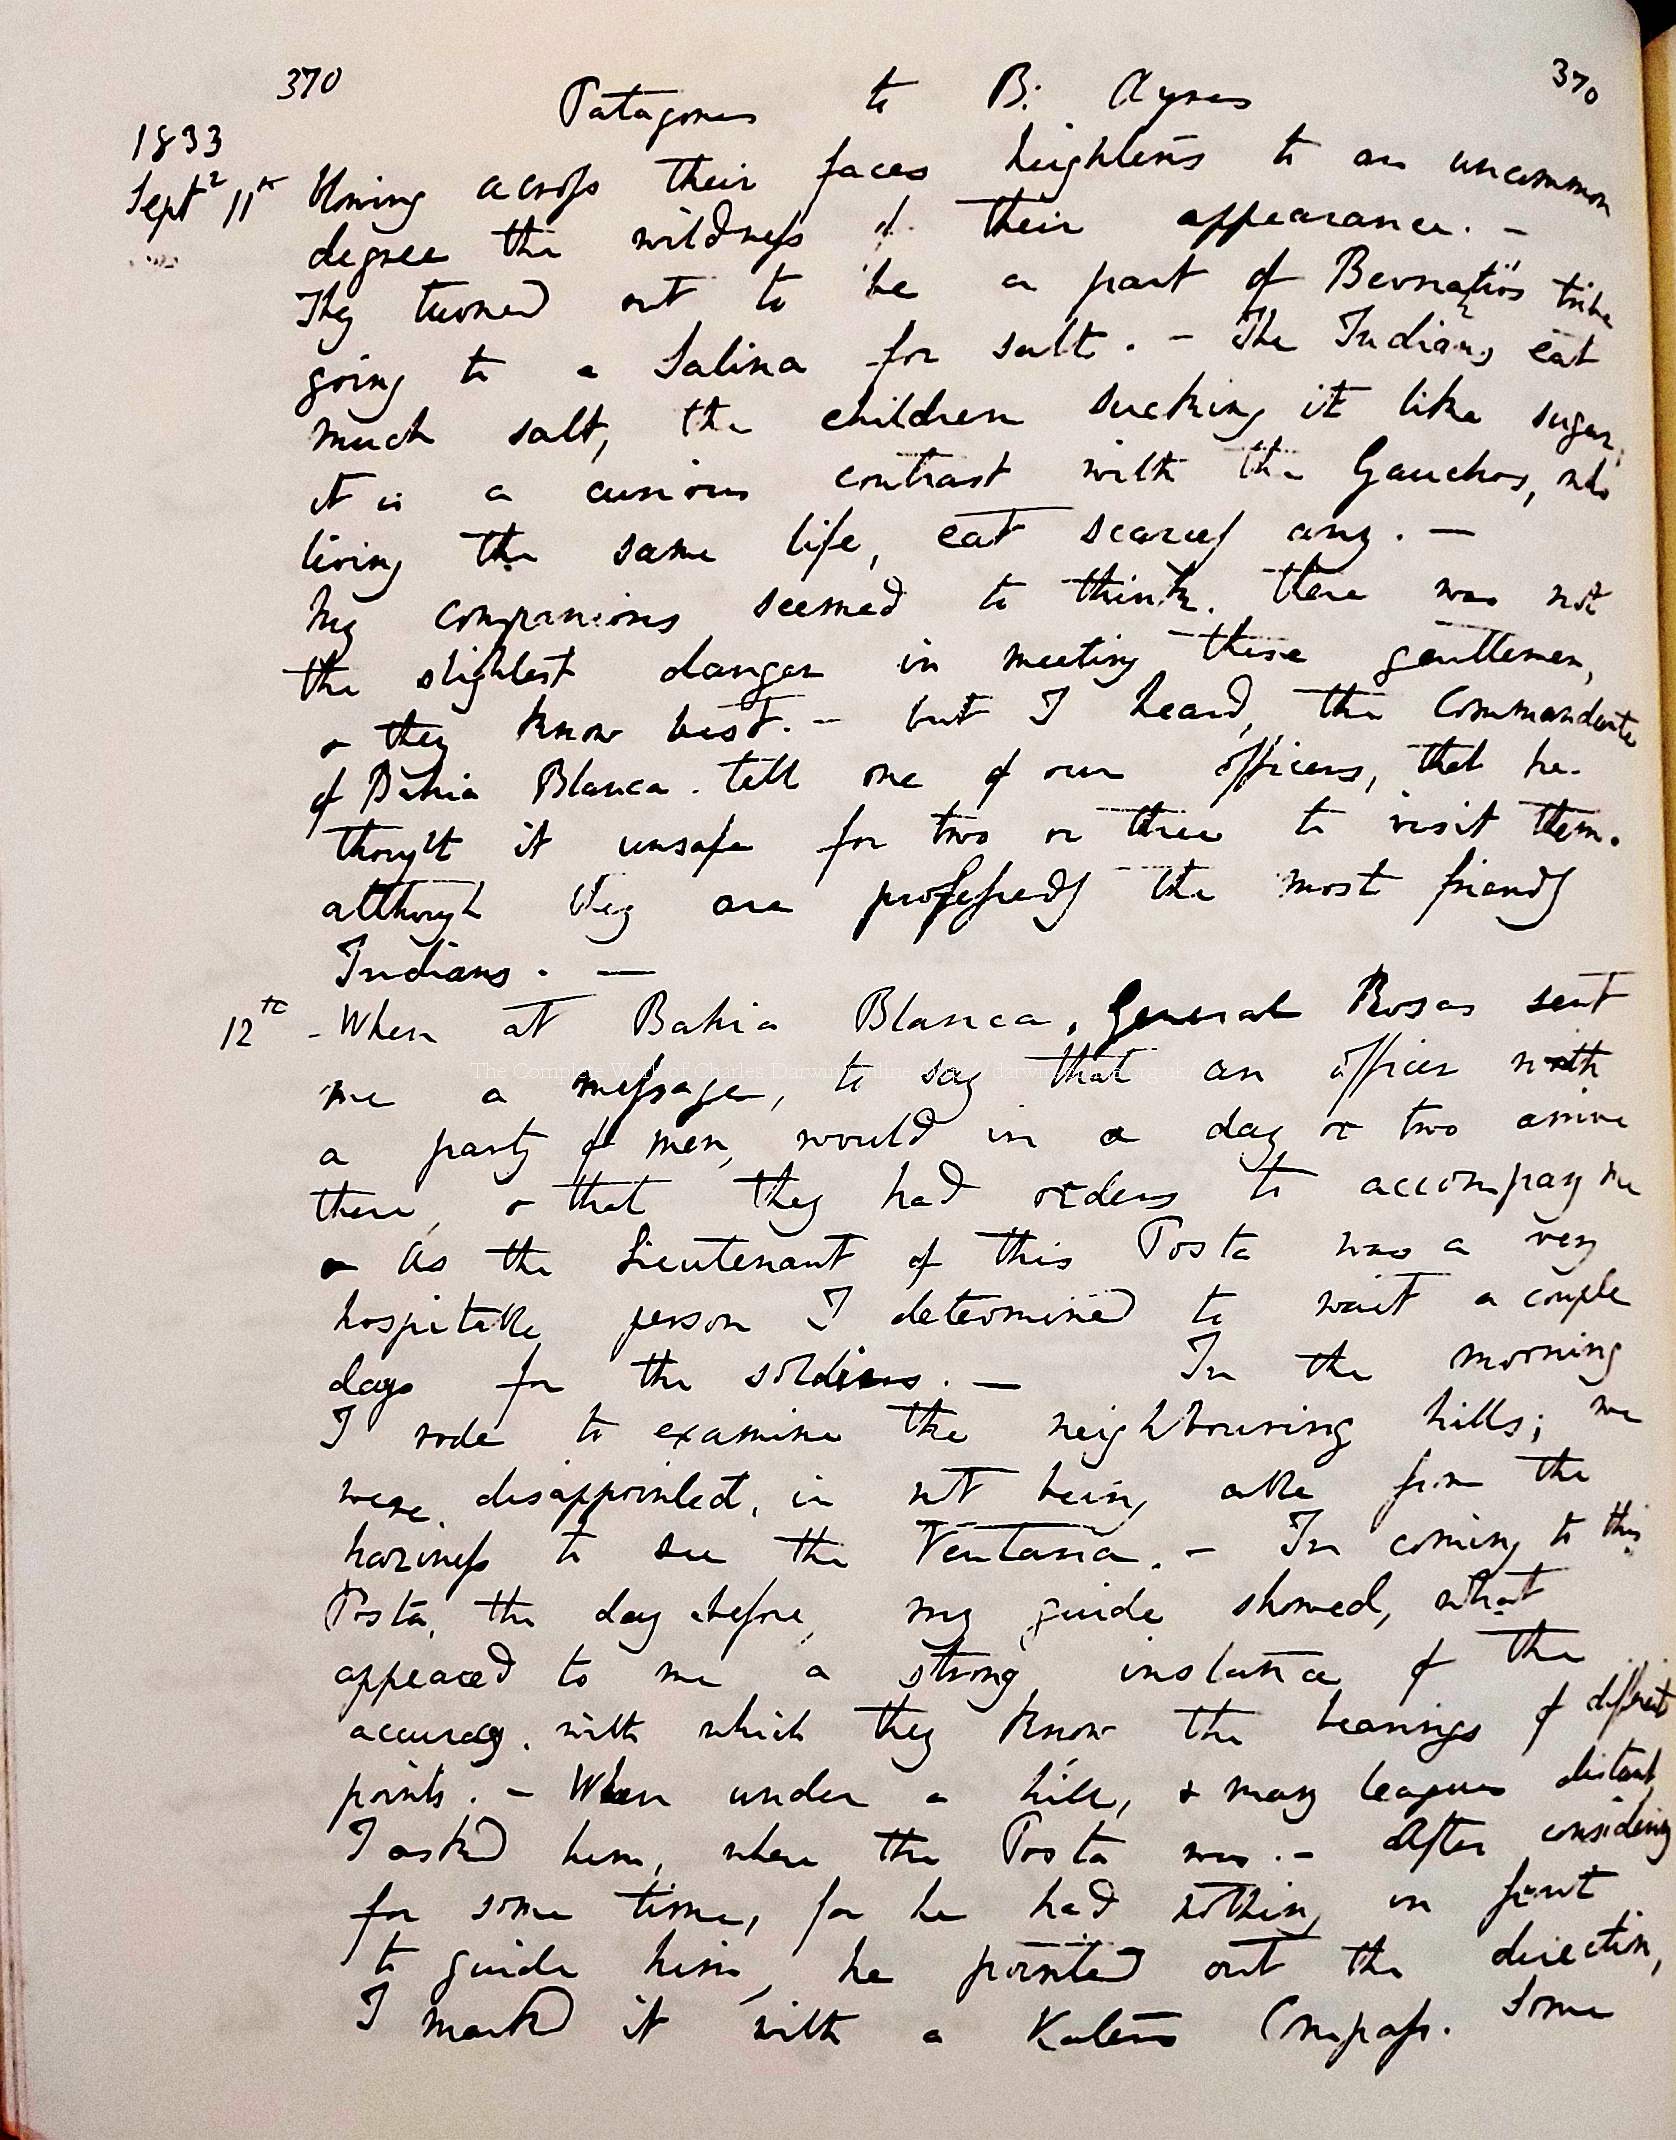 370 Patagones to B. Ayres 370
1833
Septr 11th blowing across their faces heightens to an uncommon
degree the wildness of their appearance. —
They turned out to be a part of Bernatio's tribe
going to a Salina for salt. — The Indians eat
much salt, the children sucking it like sugar,
it is a curious contrast with the Gauchos, who
living the same life, eat scarcely any. —
My companions seemed to think there was not
the slightest danger in meeting these gentlemen,
& they know best. — but I heard, the Commandante
of Bahia Blanca tell one of our officers, that he
thought it unsafe for two or three to visit them.
although they are professedly the most friendly
Indians. —
12th – When at Bahia Blanca, General Rosas sent
me a message, to say that an officer with
a party of men, would in a day or two arrive
there, & that they had orders to accompany me
& As the Lieutenant of this Posta was a very
hospitable person I determined to wait a couple
days for the soldiers. — In the morning
I rode to examine the neighbouring hills; we
were disappointed, in not being able from the
haziness to see the Ventana. – In coming to this
Posta, the day before, my guide showed, what
appeared to me a strong instance of the
accuracy with which they know the bearings of different
points. – When under a hill, & many leagues distant,
I asked him, where the Posta was. – After considering
for some time, for he had nothing in front
to guide him, he pointed out the direction,
I marked it with a Katers Compass. Some
The Complete Work of Charles Darwin Online darwin-online.org.uk/